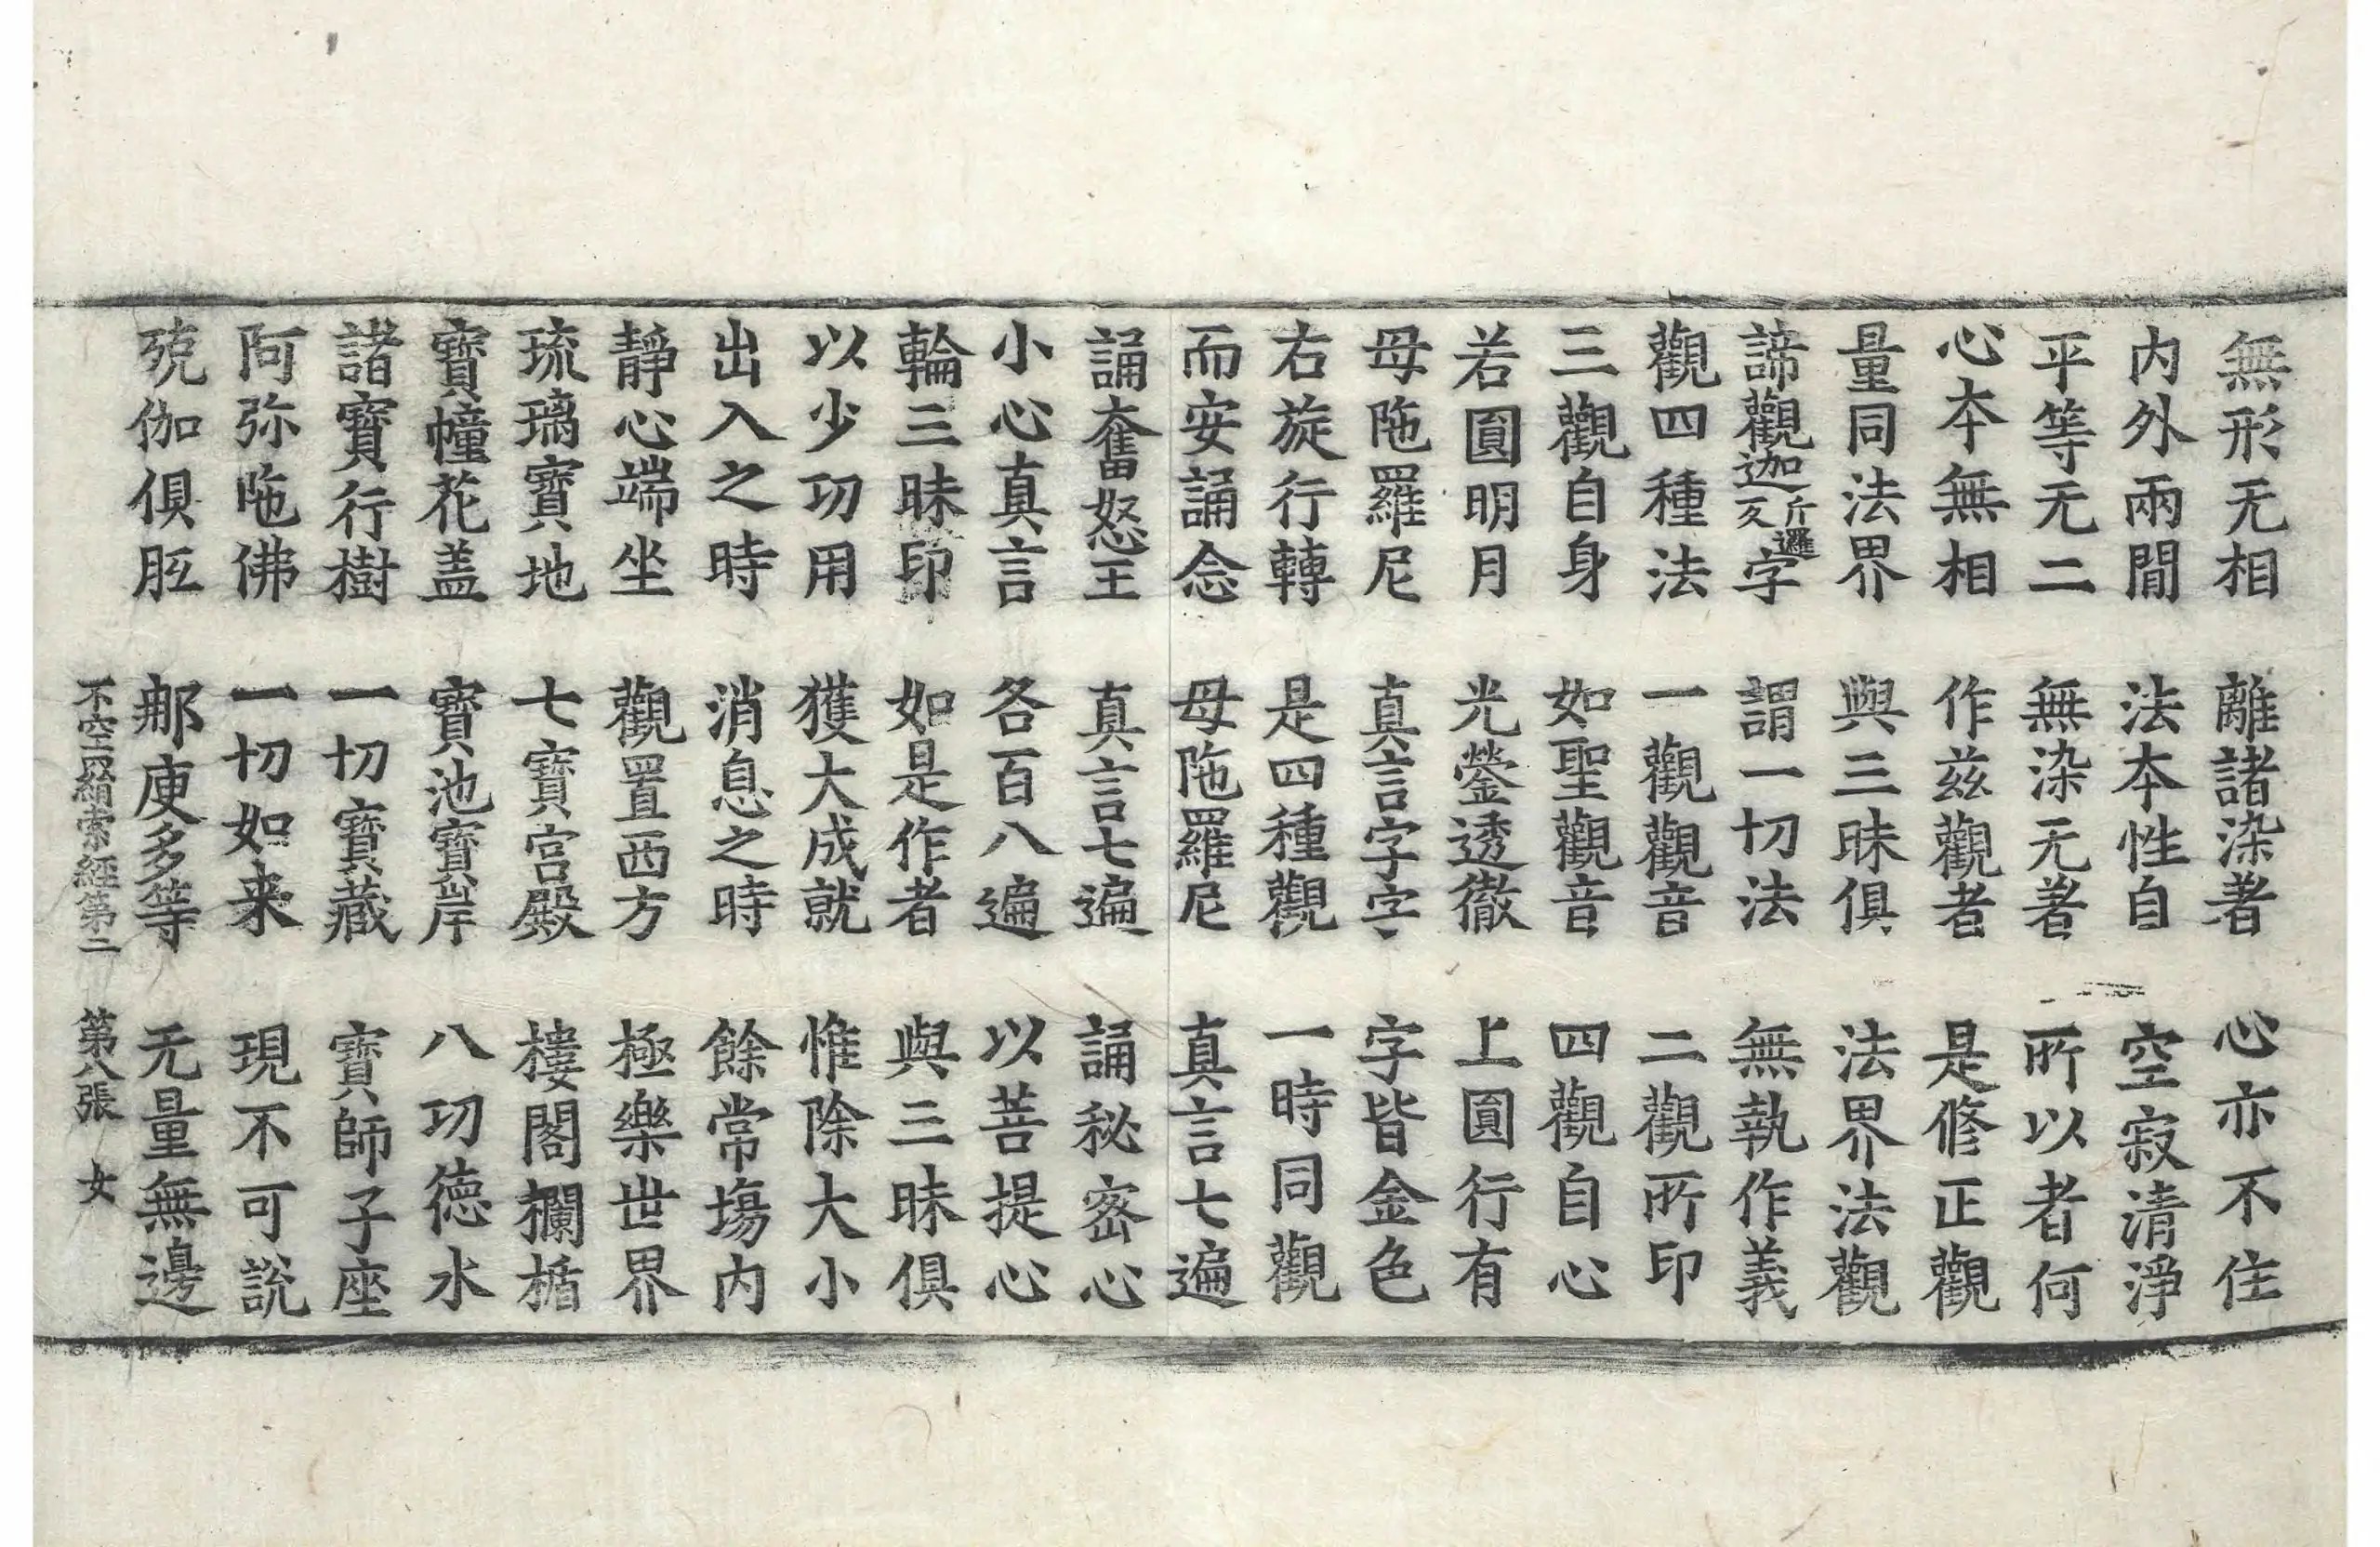 無形无相 離諸染著 心亦不住
内外兩間 法本性自 空寂清淨
平等无二 無染无著 所以者何
心本無相 作兹觀者 是修正觀
量同法界 與三昧俱 法界法觀
諦觀迦斤邏反字 謂一切法 無執作義
觀四種法 一觀觀音 二觀所印
三觀自身 如聖觀音 四觀自心
若圓明月 光瑩透徹 上圓行有
母陁羅尼 真言字字 字皆金色
右旋行轉 是四種觀 一時同觀
而安誦念 母陁羅尼 真言七遍
誦奮怒王 真言七遍 誦秘密心
小心真言 各百八遍 以菩提心
輪三昧印 如是作者 與三昧俱
以少功用 獲大成就 惟除大小
出入之時 消息之時 餘常塲内
靜心端坐 觀置西方 極樂世界
琉璃寶地 七寶宮殿 樓閣欄楯
寶幢花盖 寶池寶岸 八功德水
諸寶行樹 一切寶藏 寶師子座
阿弥陁佛 一切如来 現不可說
殑伽俱胝 那庾多等 无量無邊
不空羂索經第二 第八張 女